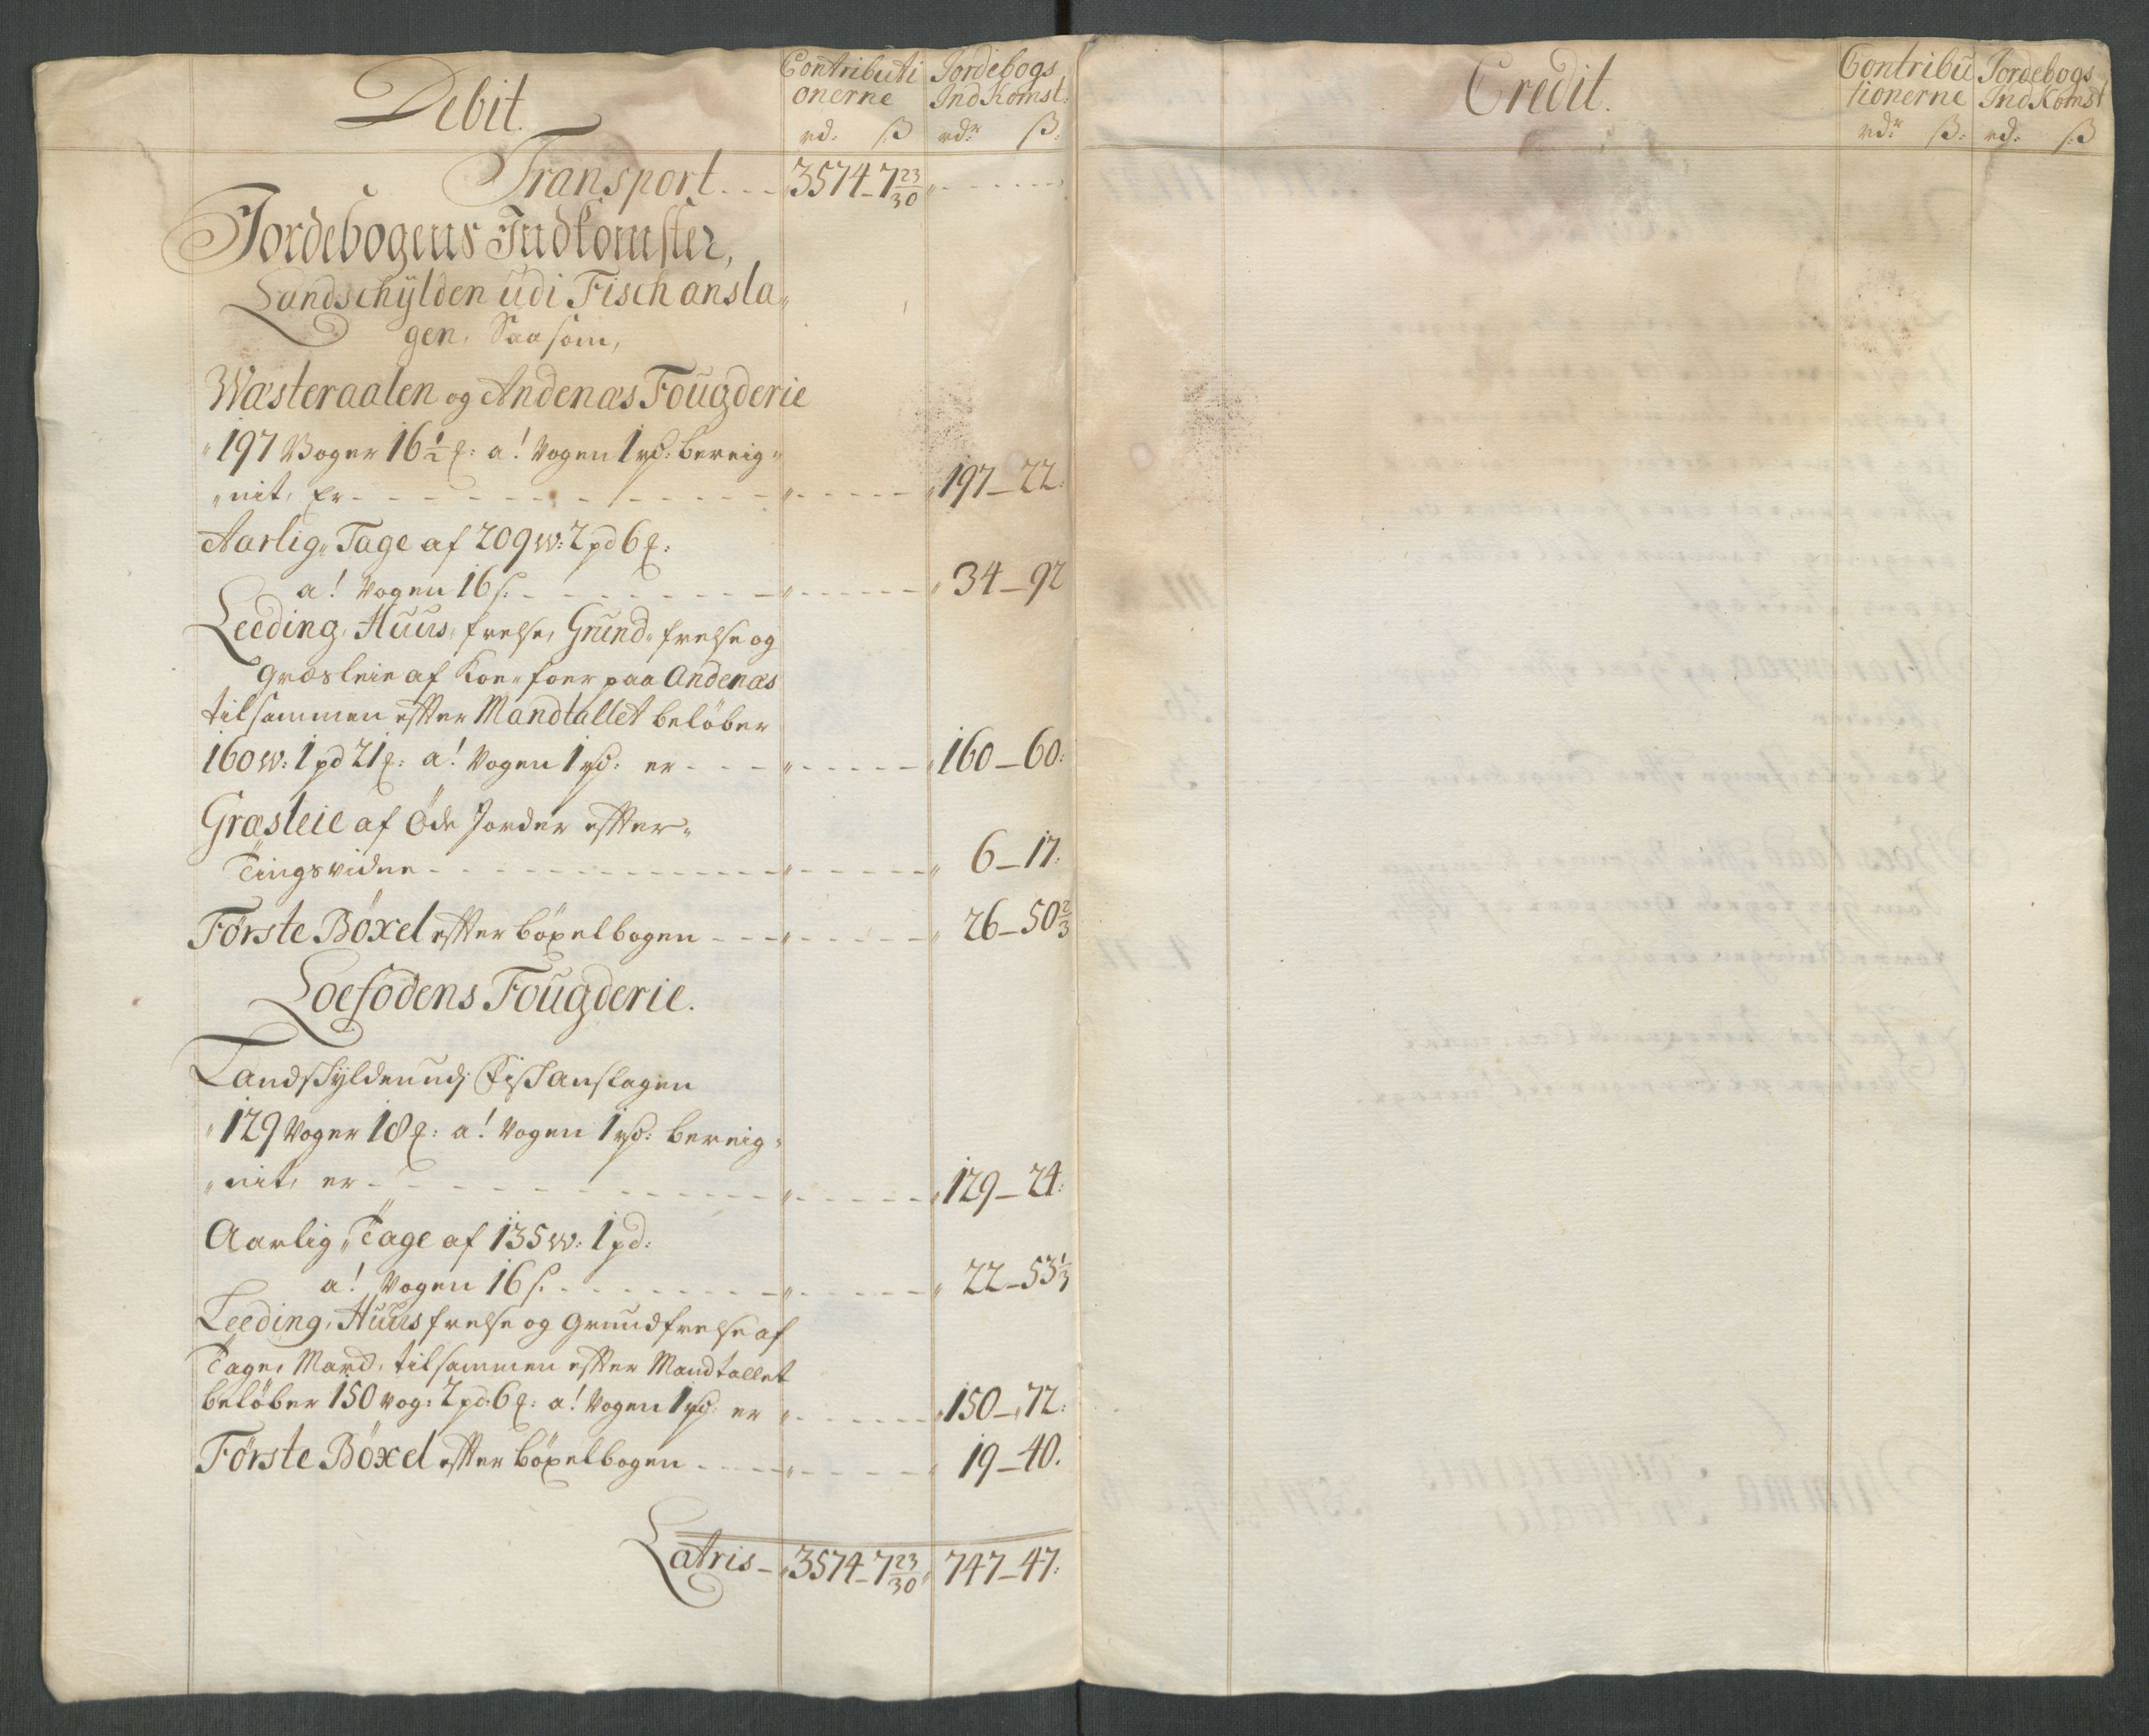 Debit.
Contributi
onerne
rd: ß
Jordebogs
IndKomst:
rdr ß:
Transport - - - 3574 - 7 23/30 " - - - - - -
Jordebogens Indkomster,
Landschÿlden udi Fisch ansla"
gen, Saasom,
Wæsteraalen og Andenæs Fougderie
"197 Voger 16 1/2 ℔: a! Vogen 1 rd: bereig"
"nit, Er - - - - - " - - - - - " 197 - 22:
Aarlig" Tage af 209 w: 2 pd 6 ℔:
a! Vogen 16 s. - - - - - " - - - - - " 34 - 92
Leeding, Huus, frelse, Grund" frelse og
Græsleie af Koe" foer paa Andenæs
tilsammen efter Mandtallet beløber
160 w: 1 pd 21 ℔: a! Vogen 1 rd: er - - - " - - - - - " 160 - 60:
Græsleie af Øde Jorder efter"
Tingsvidne - - - - - " - - - - - " 6 - 17:
Første Böxel efter böxelbogen - - - " - - - - - " 26 - 50 2/3
Loefodens Fougderie.
Landschylden udj Fisch anslagen
"129 Voger 18 ℔: a! Vogen 1 rd: bereig"
"nit, er - - - - - " - - - - - " 129 - 24:
Aarlig" Tage af 135 w: 1 pd:
a! Vogen 16 s. - - - - - " - - - - - " 22 - 53 1/3
Leeding, Huus frelse og Grundfrelse af
Tage, Mard, tilsammen efter Mandtallet
beløber 150 vog: 2 pd: 6 ℔: a! Vogen 1 rd: er " - - - - - " 150 - 72:
Første Böxel efter böxelbogen - - - - " - - - - - " 19 - 40.
Latris - " 3574 - 7 23/30 " 747 - 47:
Credit.
Contribu
tionerne
rdr ß:
Jordebogs
IndKomst
rd: ß